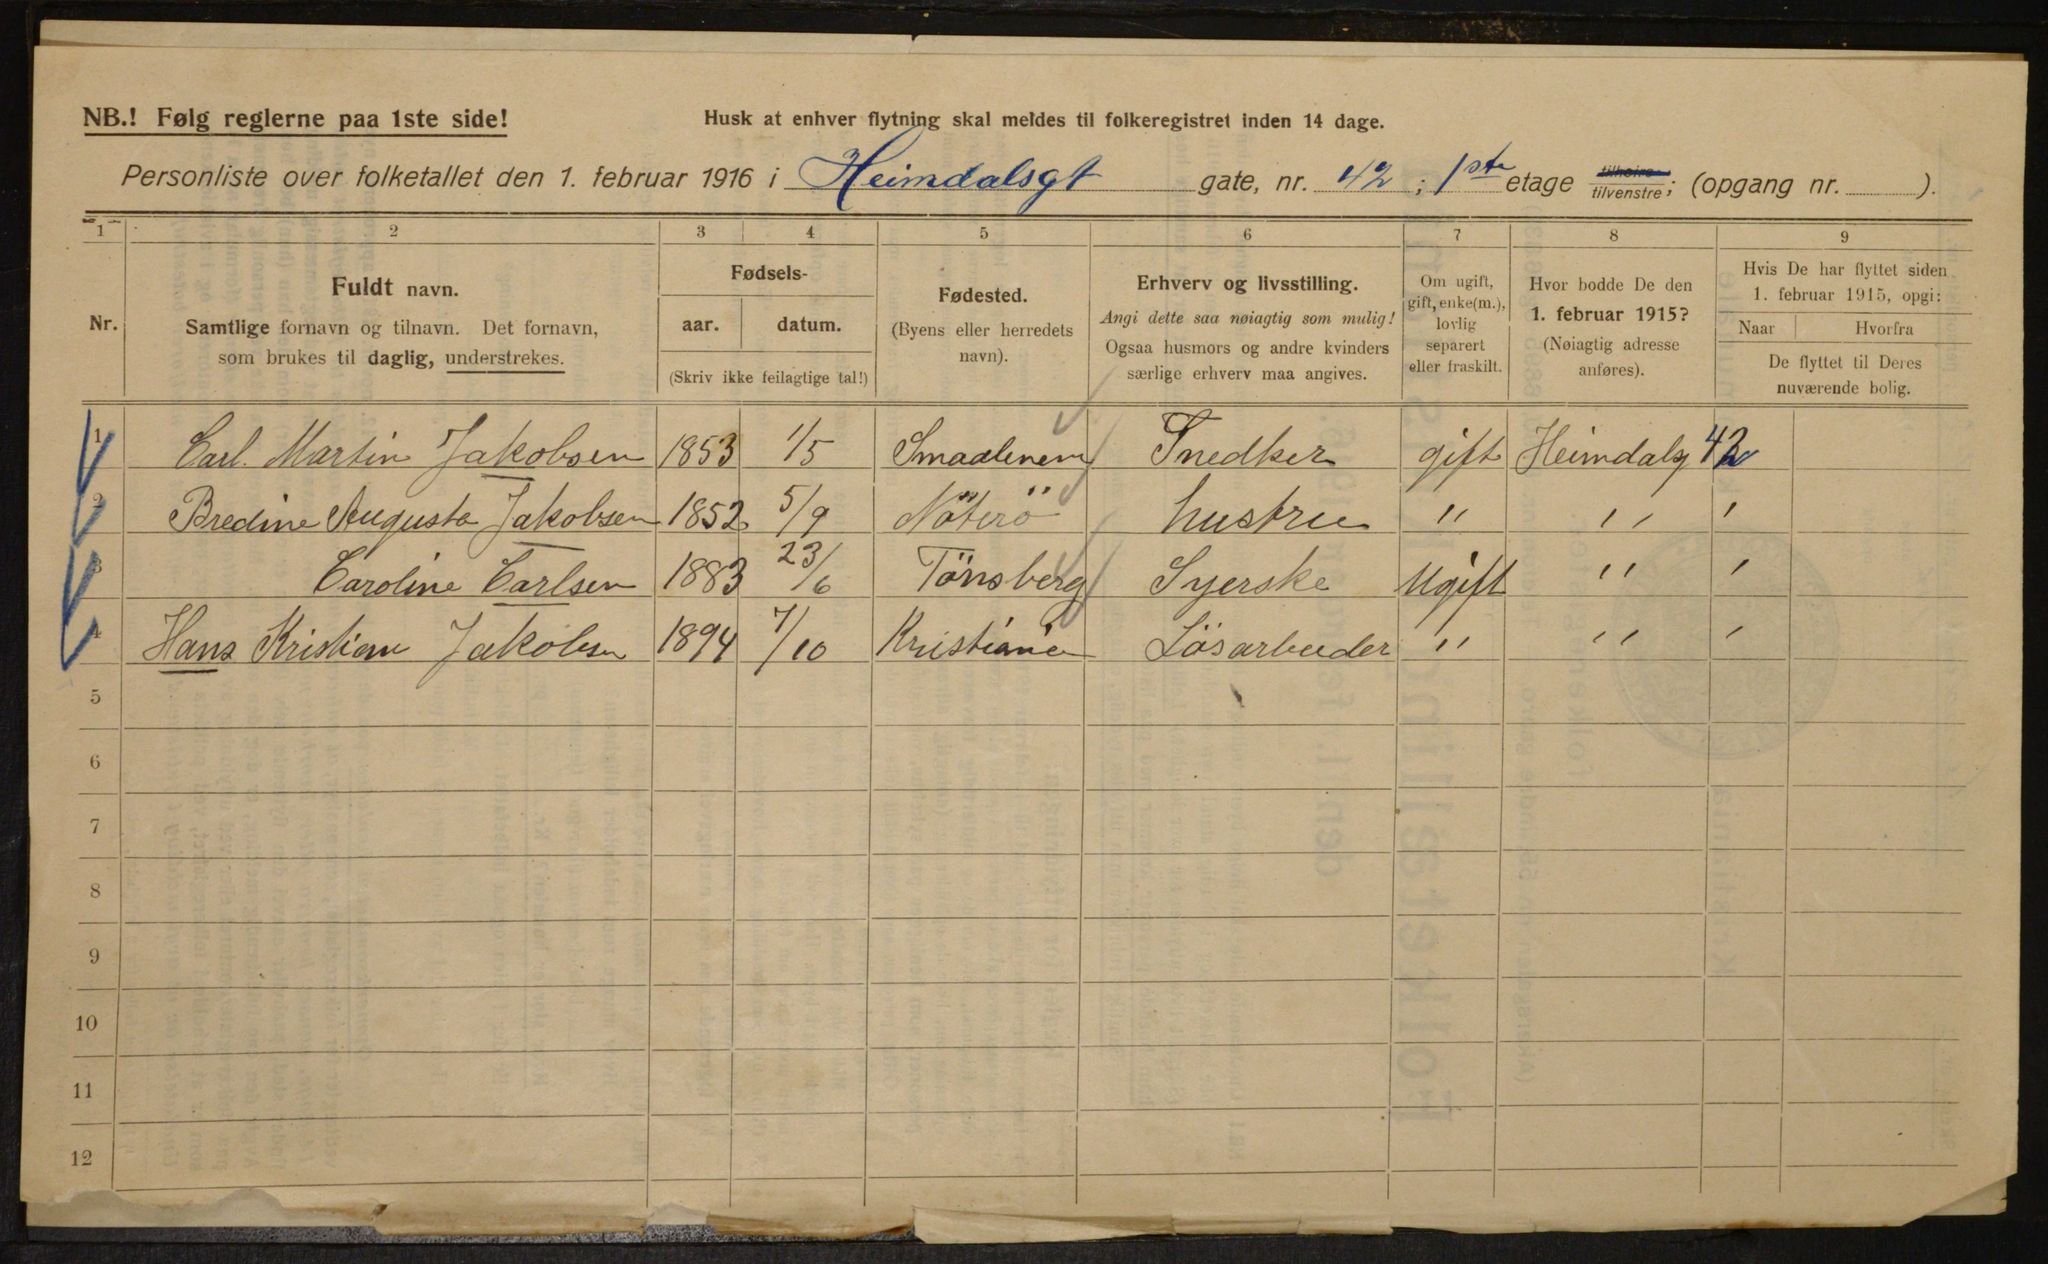 NB.! Følg reglerne paa 1ste side!
Husk at enhver flytning skal meldes til folkeregistret inden 14 dage.
Personliste over folketallet den 1. februar 1916 i Heimdalsgt gate, nr. 42 ; 1ste etage tilhøire tilvenstre; (opgang nr. ).
1 2 3 4 5 6 7 8 9
Nr.
Fuldt navn.
Samtlige fornavn og tilnavn. Det fornavn,
som brukes til daglig, understrekes.
Fødsels-
aar. datum.
(Skriv ikke feilagtige tal!)
Fødested.
(Byens eller herredets
navn).
Erhverv og livsstilling.
Angi dette saa nøiagtig som mulig!
Ogsaa husmors og andre kvinders
særlige erhverv maa angives.
Om ugift,
gift, enke(m.),
lovlig
separert
eller fraskilt.
Hvor bodde De den
1. februar 1915?
(Nøiagtig adresse
anføres).
Hvis De har flyttet siden
1. februar 1915, opgi:
Naar Hvorfra
De flyttet til Deres
nuværende bolig.
1 Carl. Martin Jakobsen 1853 1/5 Smaalenene Snedker gift Heimdalsg 42
2 Bredine Augusta Jakobsen 1852 5/9 Nöterö hustru " " "
3 Caroline Carlsen 1883 23/6 Tönsberg Syerske Ugift " "
4 Hans Kristian Jakobsen 1894 7/10 Kristiania Lösarbeider " " "
5
6
7
8
9
10
11
12